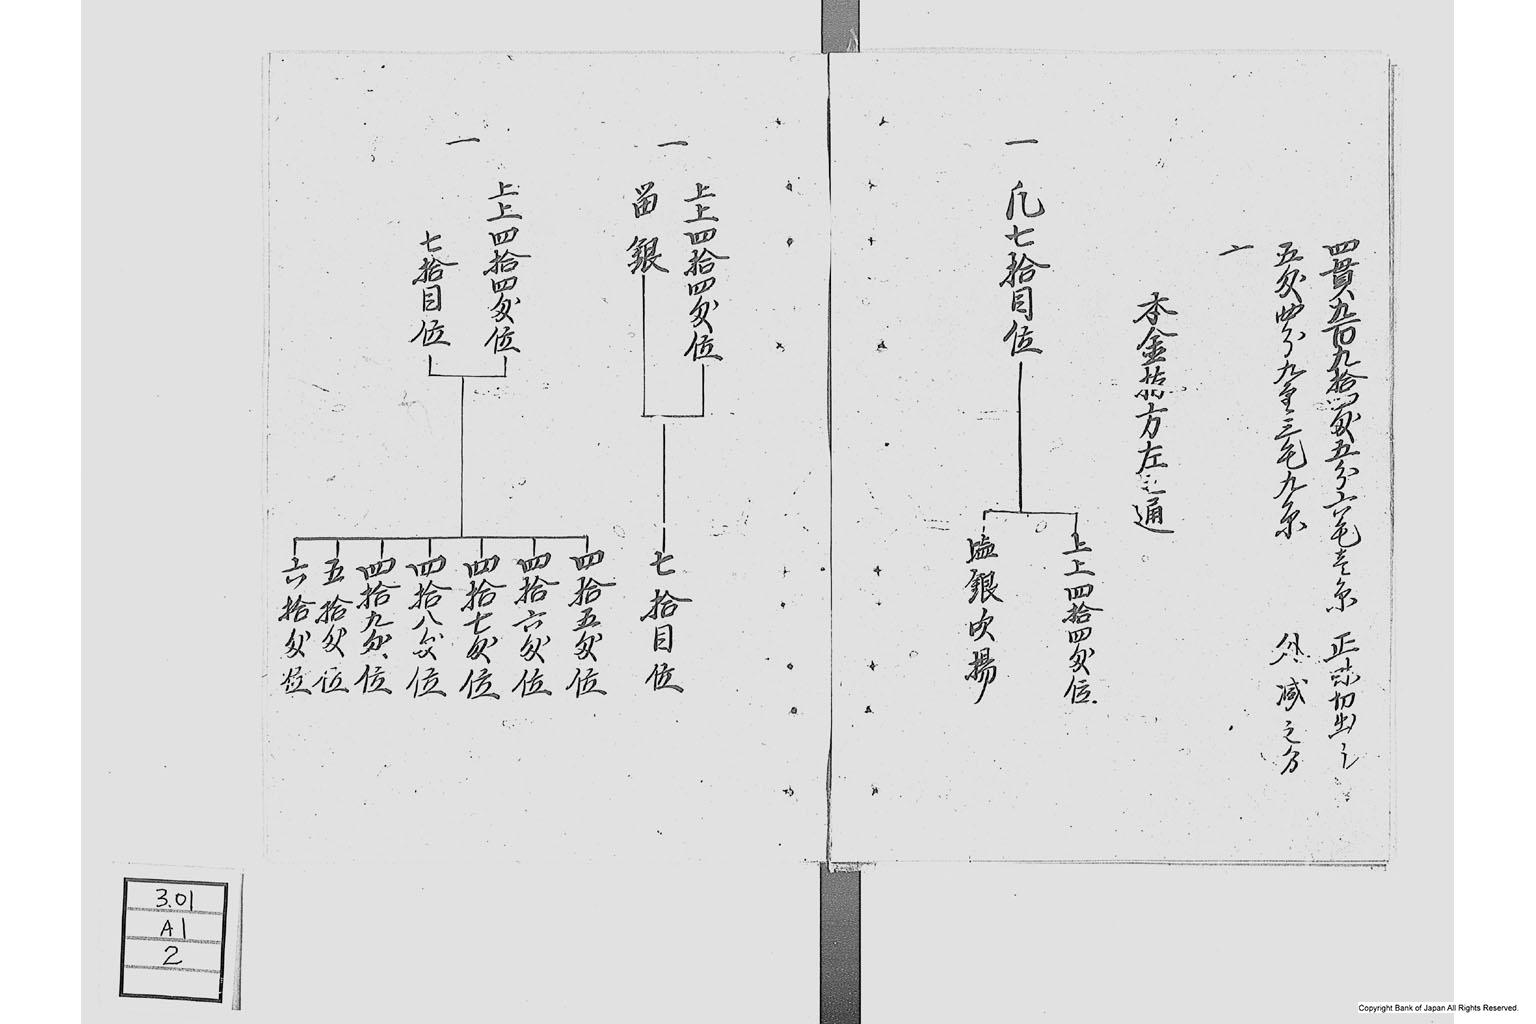 四貫九百九拾四匁五分六毛壱糸 正味切出し
五匁四分九厘三毛九糸 外ニ減之分
〆
本金拵方左之通
一
凡七拾目位
上上四拾四匁位
塩銀吹揚
一
上上四拾四匁位
留銀
七拾目位
一
上上四拾四匁位
七拾目位
四拾五匁位
四拾六匁位
四拾七匁位
四拾八匁位
四拾九匁位
五拾匁位
六拾匁位
3.01
A1
2
Copyright Bank of Japan All Rights Reserved.